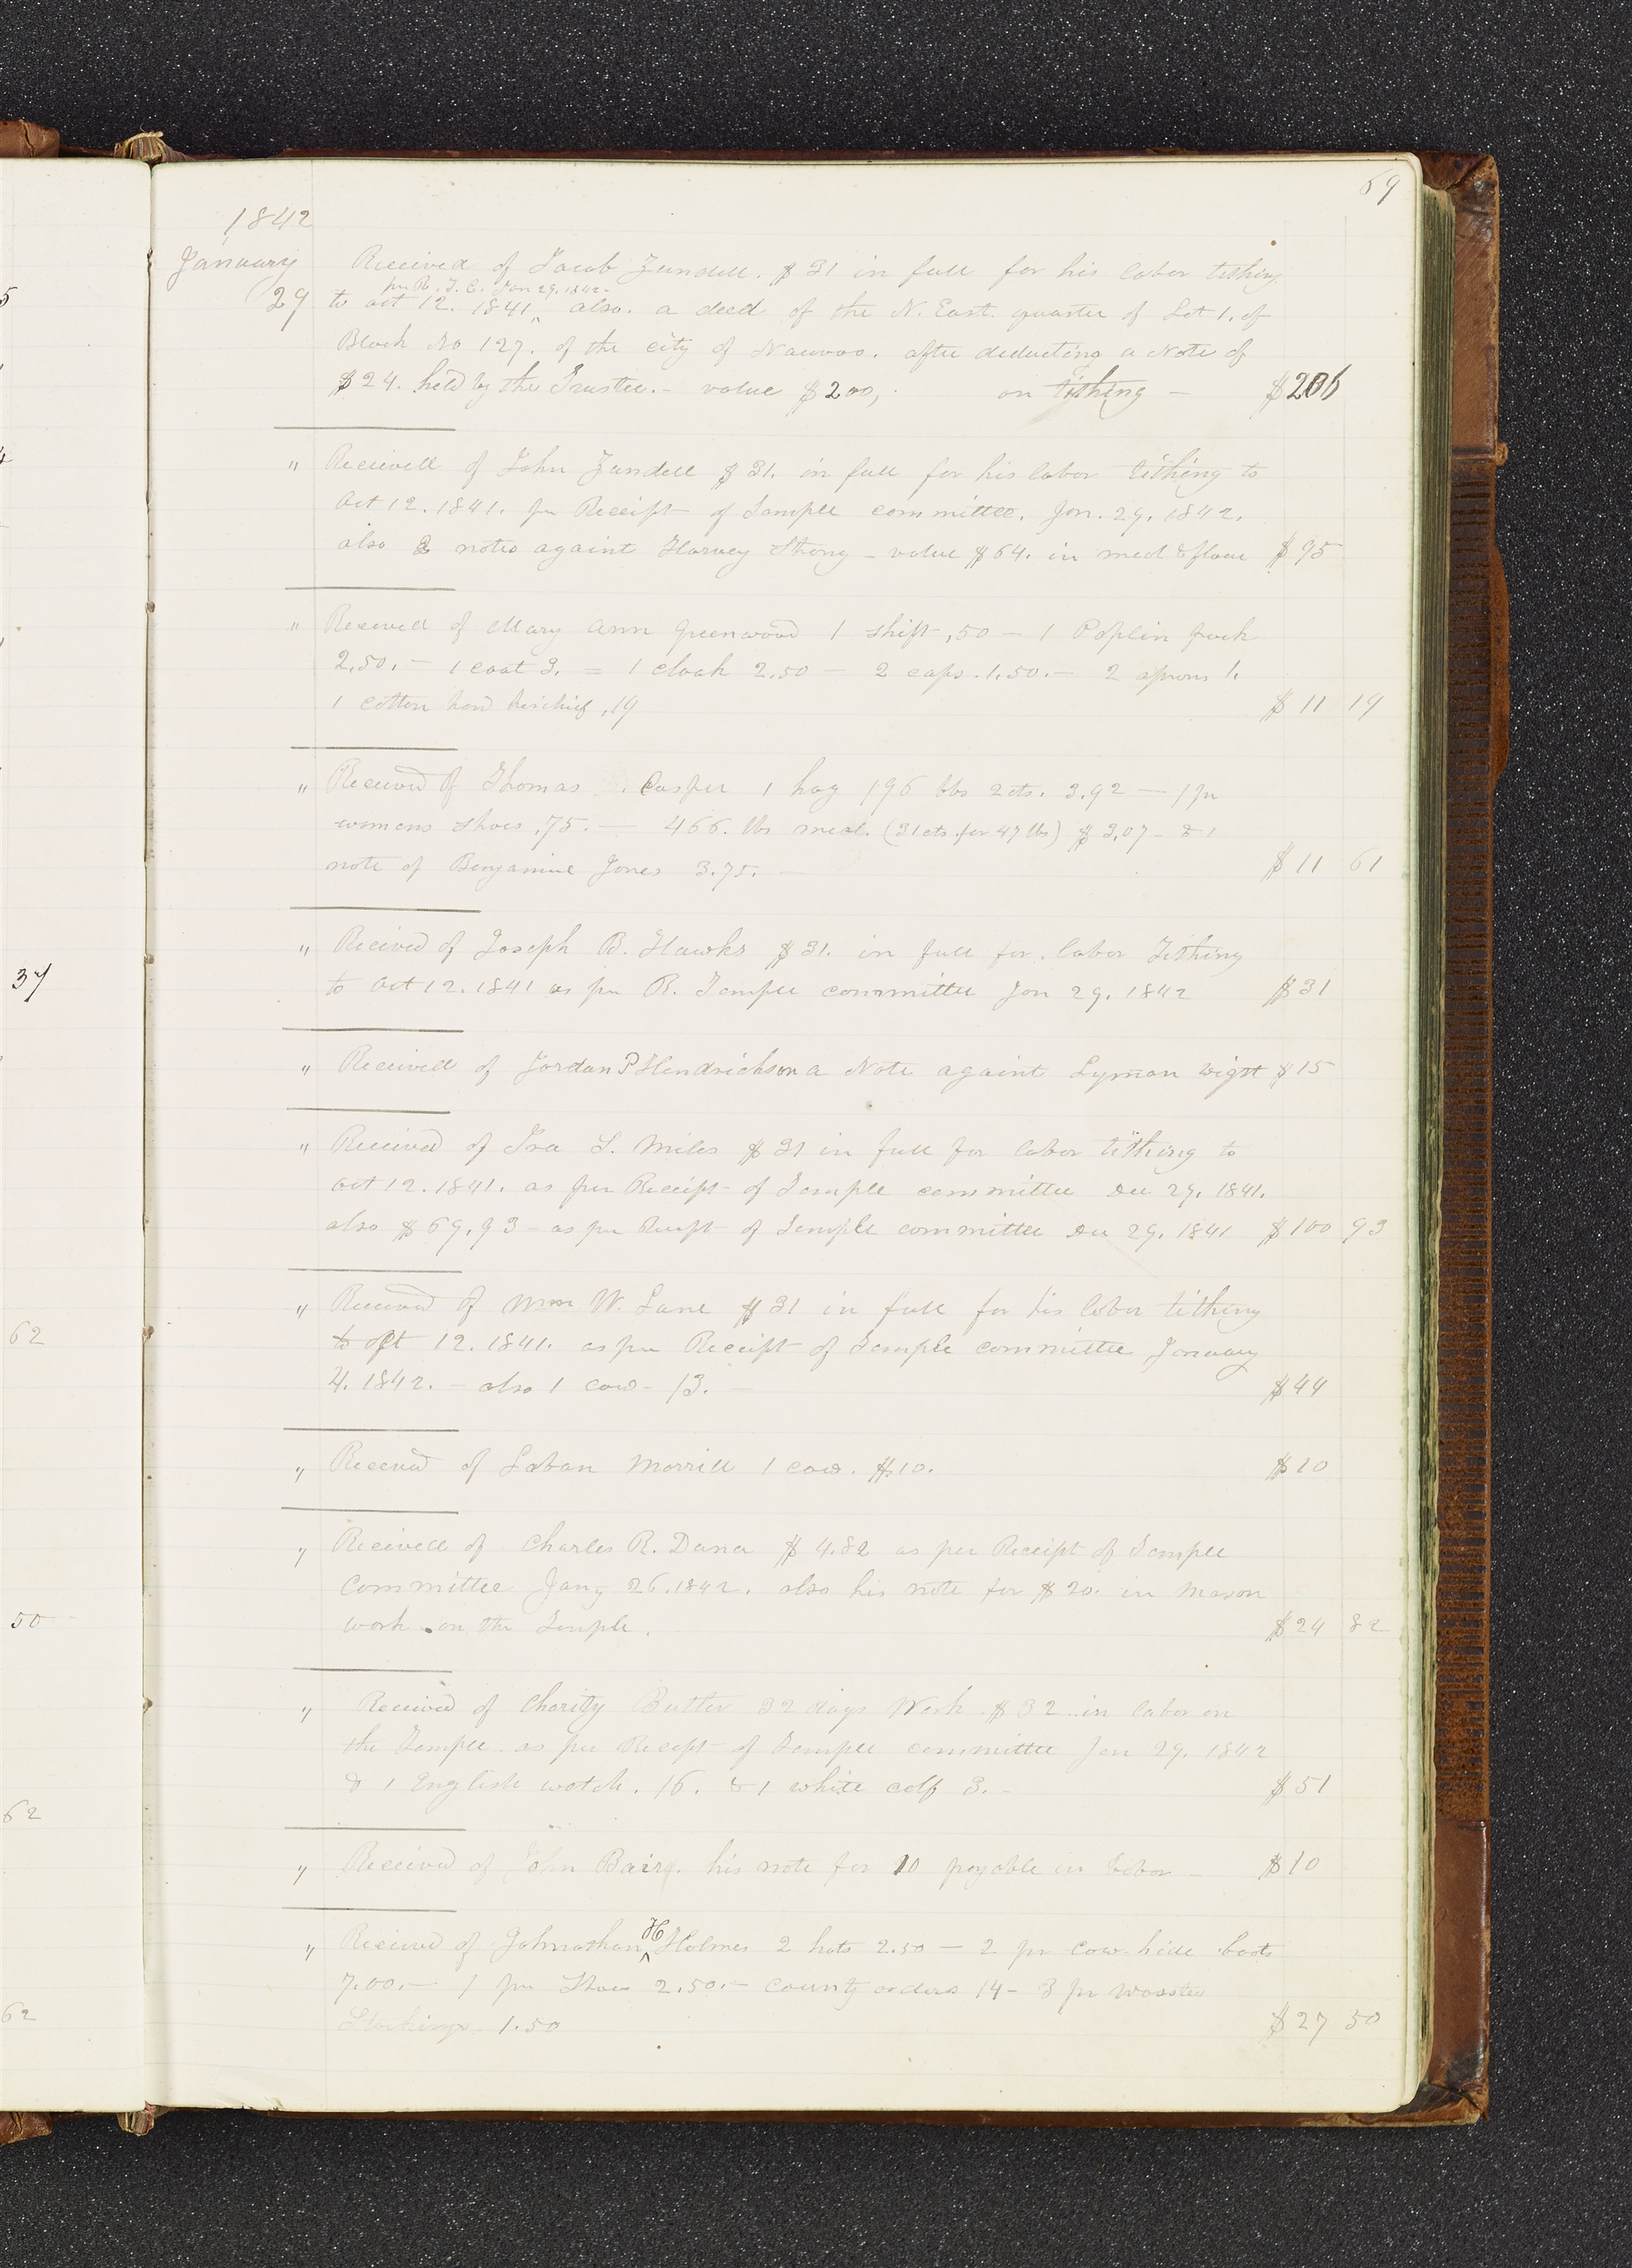 69
1842
January
29
Received of Jacob Zundell. $31 in full for his labor tithing
per R. T. C. Jan 29. 1842-
to oct 12. 1841, ^ also. a deed of the N. East. quarter of Lot 1. of
Block No 127. of the city of Nauvoo. after deducting a Note of
$24. held by the Trustee. - value $200, on tithing - $206
" Received of John Zundell $31. in full for his labor tithing to
Oct 12. 1841. per Receipt of Temple committee. Jan. 29. 1842.
also 2 notes againt Harvey Strong - value $64. in meal & flour $95
" Received of Mary Ann Greenwood 1 shift ,50 - 1 Poplin frock
2.50. - 1 coat 3. = 1 cloak 2.50 - 2 caps. 1.50. - 2 aprons 1.
1 cotton hand kerchief ,19 $11 19
" Received of Thomas Casper 1 hog 196 lbs 2 cts. 3.92 - 1 pr
womens shoes ,75. - 466. lbs meal. (31 cts. for 47 lbs) $3,07 - & 1
note of Benjamine Jones 3.75. - $11 61
" Received of Joseph B. Hawks $31. in full for. labor Tithing
to Oct 12. 1841 as per R. Temple committee Jan 29. 1842 $31
" Received of Jordan P Hendrickson a Note againt Lyman Wigtt $15
" Received of Ira S. Miles $31 in full for labor tithing to
Oct 12. 1841. as per Receipt of Temple committee Dec 29. 1841.
also $69.93 - as per Receipt of Temple committee Dec 29. 1841 $100 93
" Received of Wm W. Lane $31 in full for his labor tithing
to oct 12. 1841. as per Receipt of Temple committee January
4. 1842. - also 1 cow - 13. - $44
" Received of Laban Morrill 1 cow. $10. $10
" Received of Charles R. Dana $4.82 as per Receipt of Temple
Committee Jany 26. 1842. also his note for $20. in Mason
work on the Temple. $24 82
" Received of Charity Butler 32 days Work $32 in labor on
the Temple as per Receipt of Temple committee Jan 29. 1842
& 1 English watch. 16. & 1 white calf 3. - $51
" Received of John Baird. his note for 10 payable in labor - $10
" Received of Johnathan ^ H Holmes 2 hats 2.50 - 2 pr cow-hide boots
7.00. - 1 pr Shoes 2.50. - County orders 14 - 3 pr Woosted
Stockings 1.50 $27 50
5
37
62
50
62
62